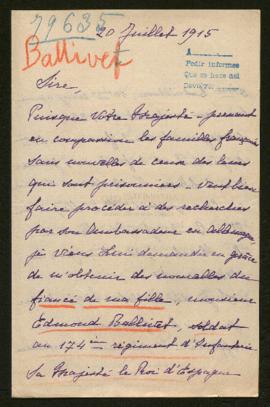 79635
Ballivet
20 Juillet 1915
A
Pedir informes
Que se hace del
Sire,
Puisque Votre Majesté - prenant
en compassion les familles françaises
sans nouvelles de ceux des leurs
qui sont prisonniers - veut bien
faire procéder à des recherches
par son Ambassadeur en Allemagne,
je viens lui demander en grâce
de m'obtenir des nouvelles du
fiancé de ma fille, monsieur
Edmond Ballivet, soldat
au 174ième régiment d'Infanterie.
Sa Majesté le Roi d'Espagne